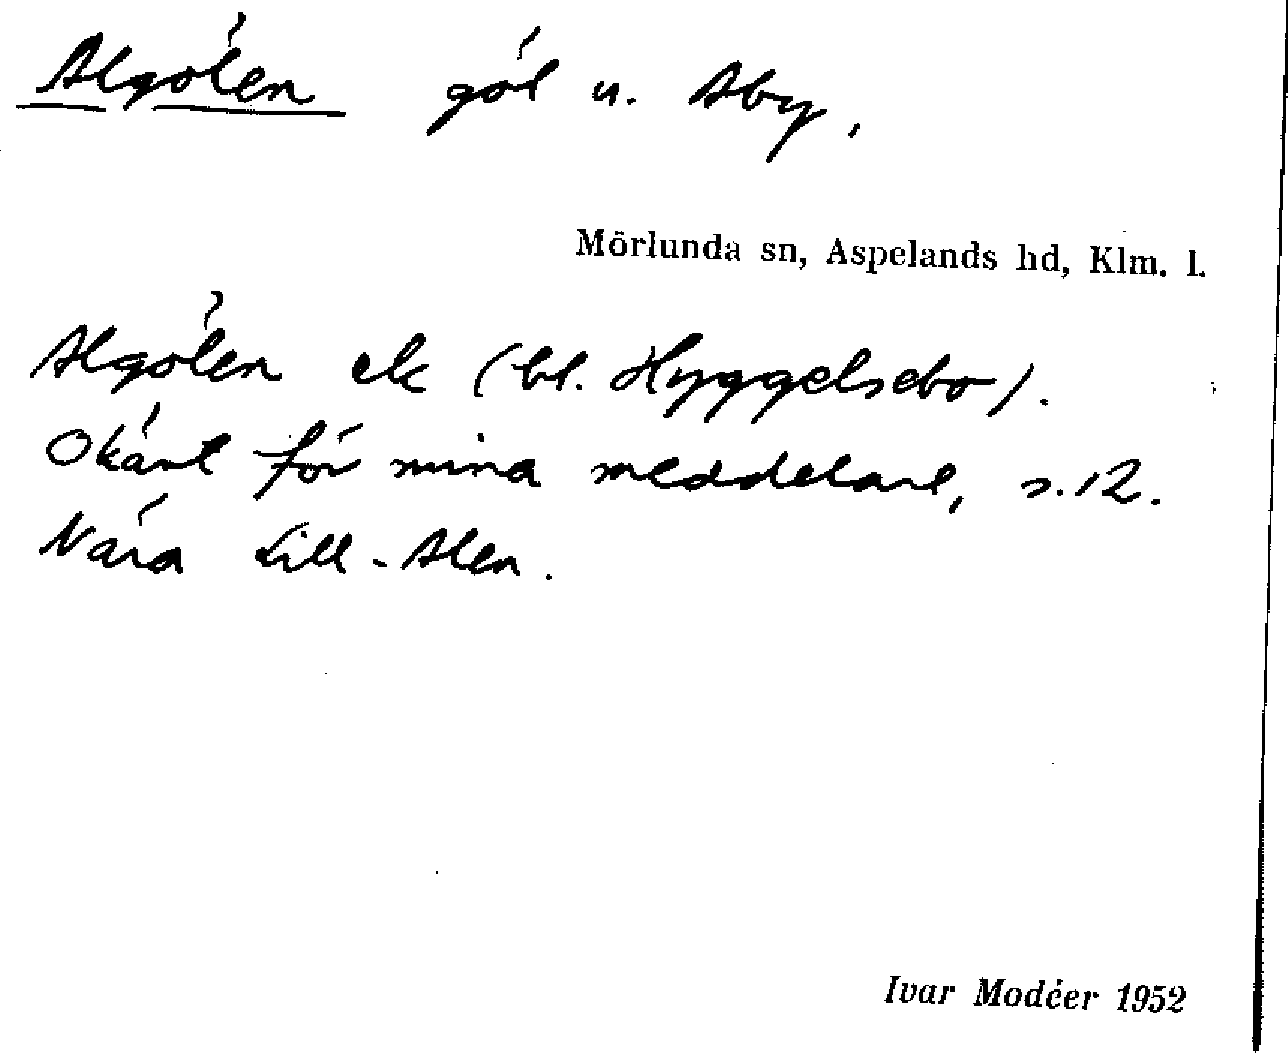 Algölen göl u. Åby,
Mörlunda sn, Aspelands hd, Klm. l.
Algölen ek (bl. Hyggelsebo).
Okänt för mina meddelare, s. 12.
Nära Lill-Alen.
Ivar Modéer 1952